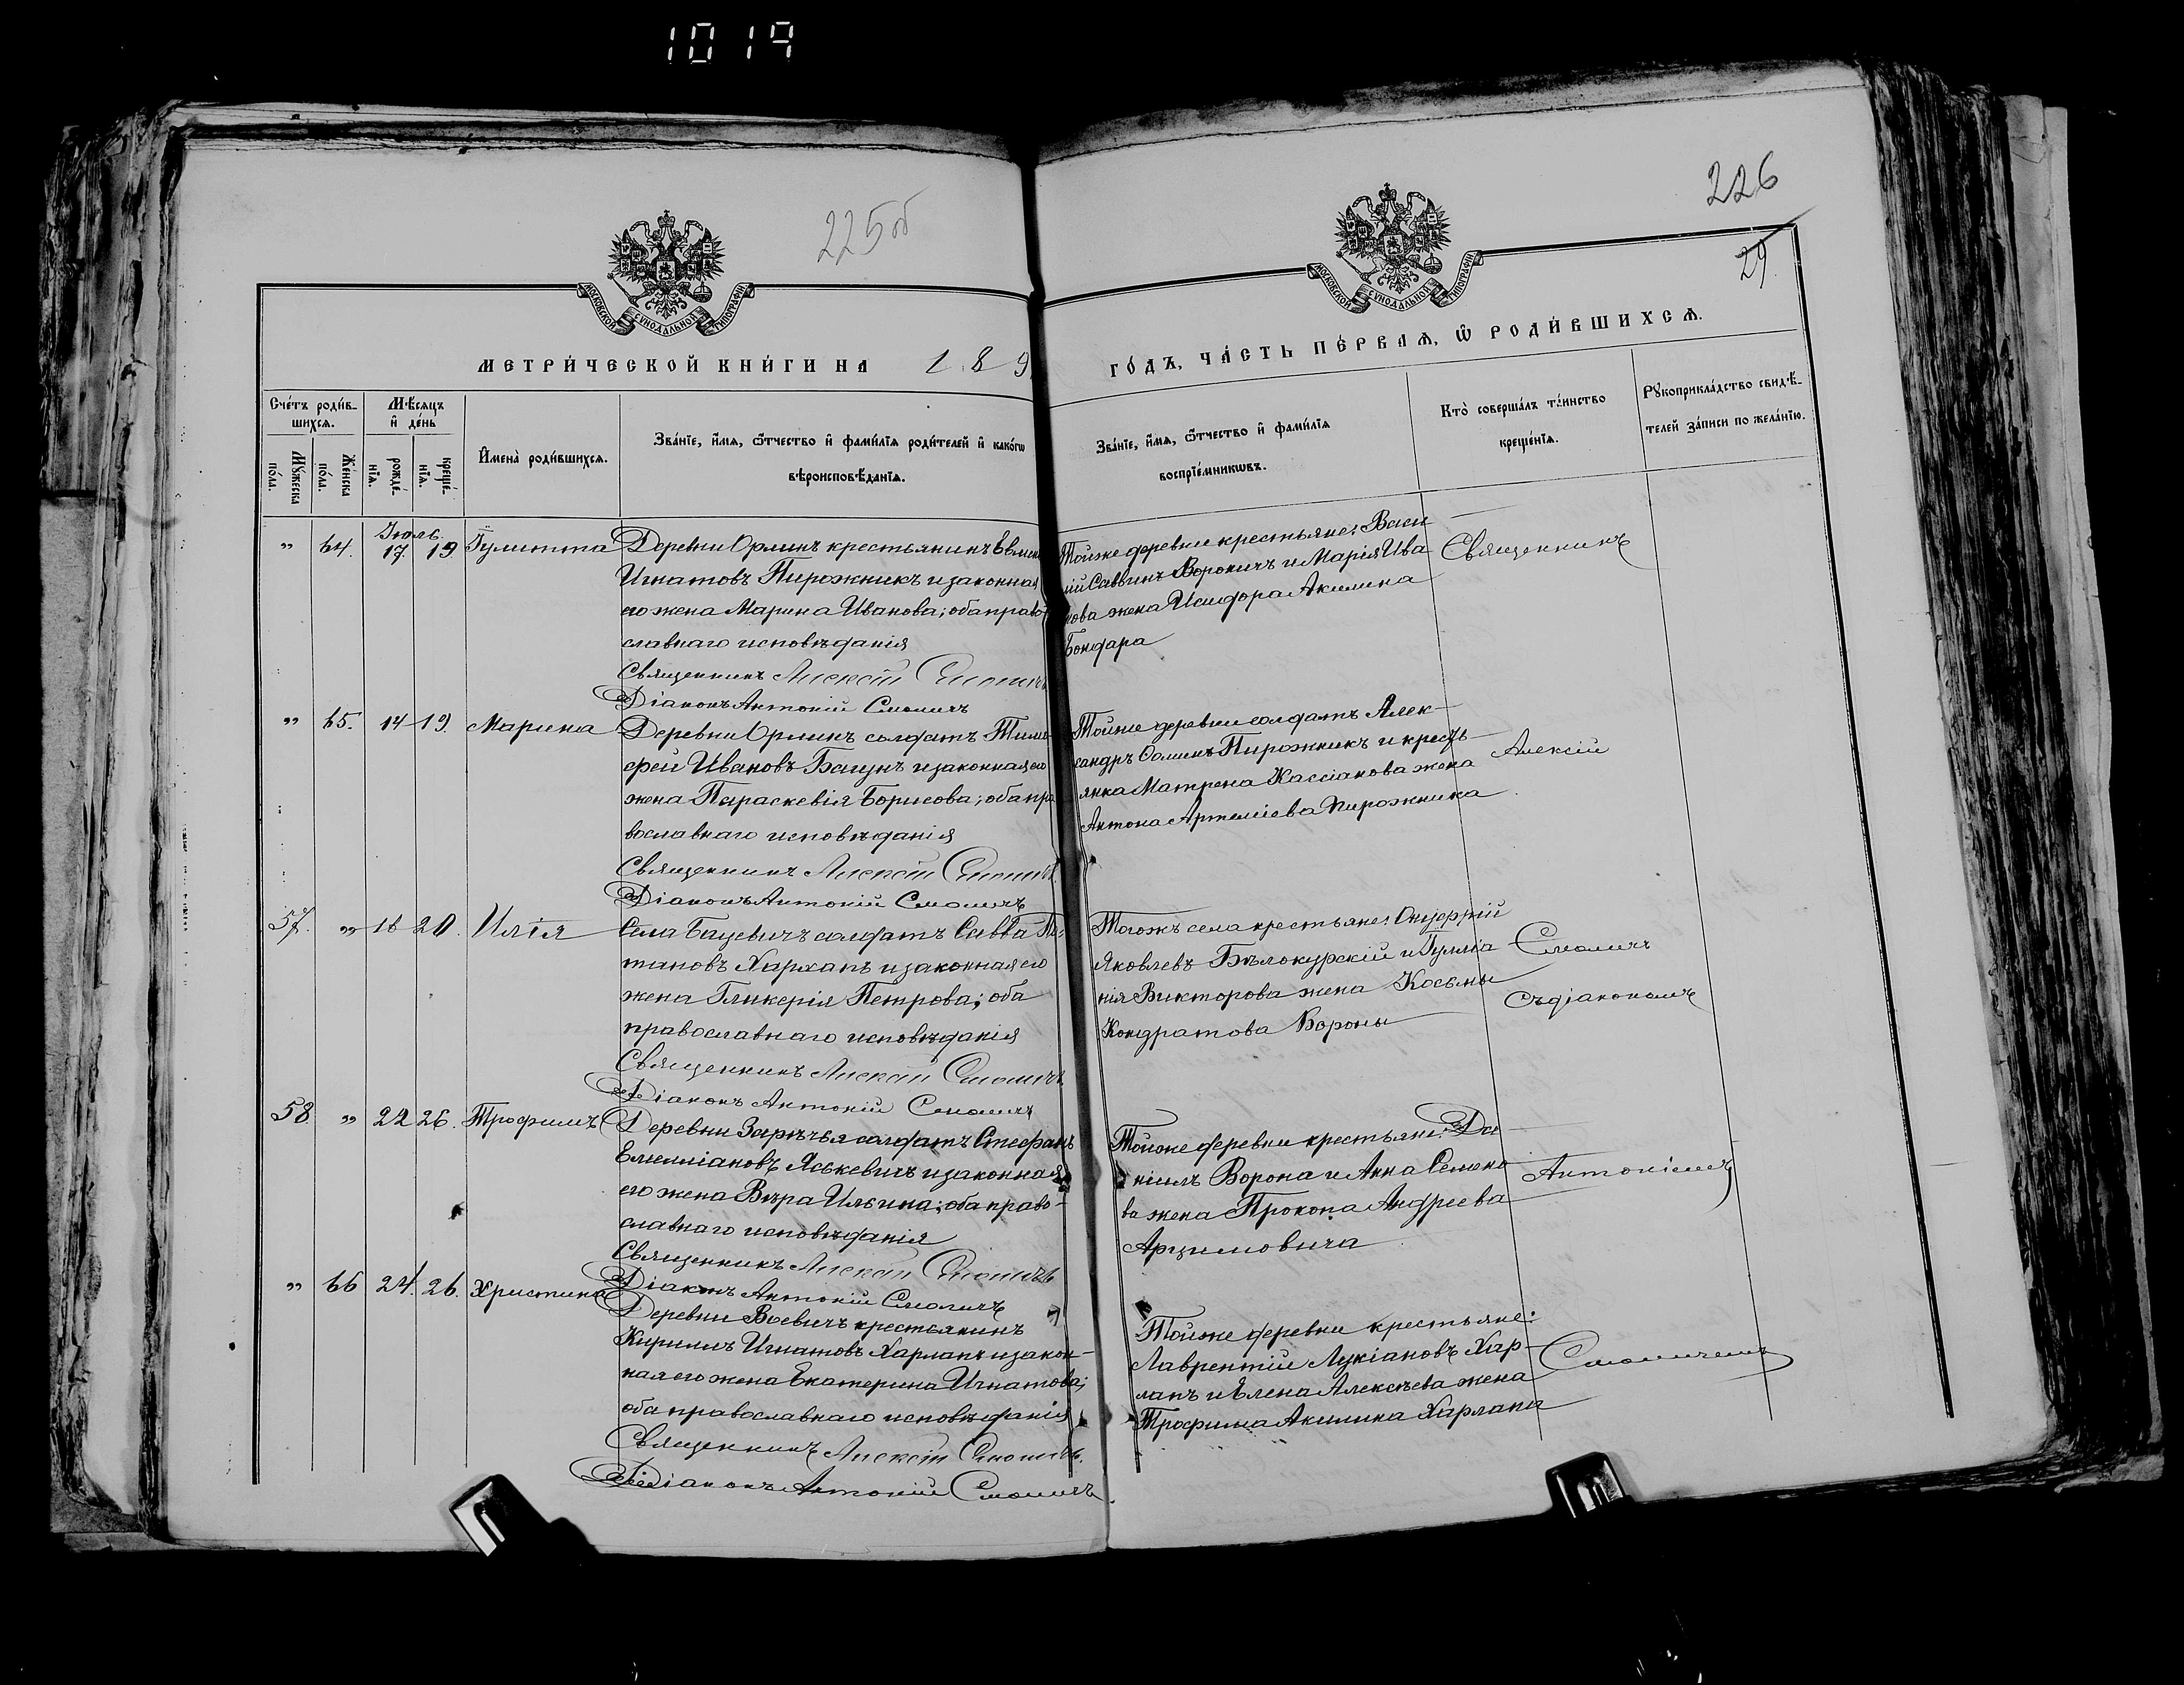 1019
225об
226
29.
МОСКОВСКОЙ СУНОДАЛЬНОЙ ТИПОГРАФІИ
МОСКОВСКОЙ СУНОДАЛЬНОЙ ТИПОГРАФІИ
МЕТРИ́ЧЕСКОЙ КНИ́ГИ НА 189
ГО́ДЪ, ЧА́СТЬ ПЕ́РВАѦ, Ѡ҆ РОДИ́ВШИХСѦ.
Сче́тъ роди́в-
шихсѧ.
Мѣ́сѧцъ
и҆ де́нь
Мꙋ́жеска
по́ла.
Же́нска
по́ла.
рожде́-
нїѧ.
креще́-
нїѧ.
И҆мена̀ роди́вшихсѧ.
Зва́нїе, и҆́мѧ, ѻ҆́тчество и҆ фами́лїѧ роди́телей и҆ како́гѡ
вѣроисповѣ́данїѧ.
Зва́нїе, и҆́мѧ, ѻ҆́тчество и҆ фами́лїѧ
воспрїе́мникѡвъ.
Кто̀ соверша́лъ та́инство
креще́нїѧ.
Рꙋкоприкла́дство свидѣ́-
телей за́писи по жела́нїю.
Іюль.
„ 64. 17. 19. Іулитта Деревни Орлинъ крестьянинъ
Игнатовъ Пирожникъ и законная
его жена Марина Иванова; оба право-
славнаго исповѣданія
Священникъ Алексій Смоличъ
Діаконъ Антоній Смоличъ
Тойже деревни крестьяне: Васи
лій Саввинъ Вороничъ и Марія Ива
нова жена Исидора Акилина
Бондара
Священникъ
„ 65. 14 19. Марина Деревни Орлинъ солдатъ Тимо-
фей Ивановъ Багунъ и законная его
жена Параскевія Борисова; оба пра
вославнаго исповѣданія
Священникъ Алексій Смоличъ
Діаконъ Антоній Смоличъ
Тойже деревни солдатъ Алек-
сандръ Пирожникъ и кресть-
янка Матрена Кассіанова жена
Антона Артеміева Пирожника
Алексій
57. „ 16 20. Илія Села Бацевичъ солдатъ Савва По-
таповъ Харлапъ и законная его
жена Гликерія Петрова; оба
православнаго исповѣданія
Священникъ Алексій Смоличъ
Діаконъ Антоній Смоличъ
Тогожъ села крестьяне: Онуфрій
Яковлевъ Бѣлокурскій и Іуліа
нія Викторова жена Косьмы
Кондратова Вороны
Смоличъ
съ діакономъ
58. „ 22 26. Трофимъ Деревни Зарѣчья солдатъ Стефанъ
Емеліановъ Яськевичъ и законная
его жена Вѣра Ильина; оба право-
славнаго исповѣданія
Священникъ Алексій Смоличъ
Діаконъ Антоній Смоличъ
Тойже деревни крестьяне: Да-
ніилъ Ворона и Анна Семено
ва жена Прокопа Андреева
Арцимовича
Антоніемъ
„ 66 24. 26. Христина Деревни Воевичъ крестьянинъ
Кириллъ Игнатовъ Харлапъ и закон-
ная его жена Екатерина Игнатова;
оба православнаго исповѣданія
Священникъ Алексій Смоличъ.
Діаконъ Антоній Смоличъ.
Тойже деревни крестьяне:
Лаврентій Лукіановъ Хар-
лапъ и Елена Алексѣева жена
Трофима Акилина Харлапа
Смоличемъ